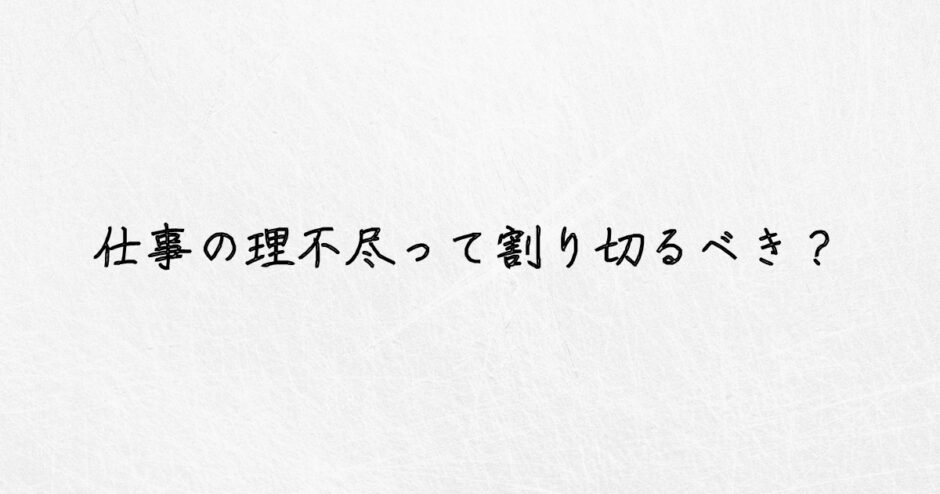 仕事の理不尽って割り切るべき？